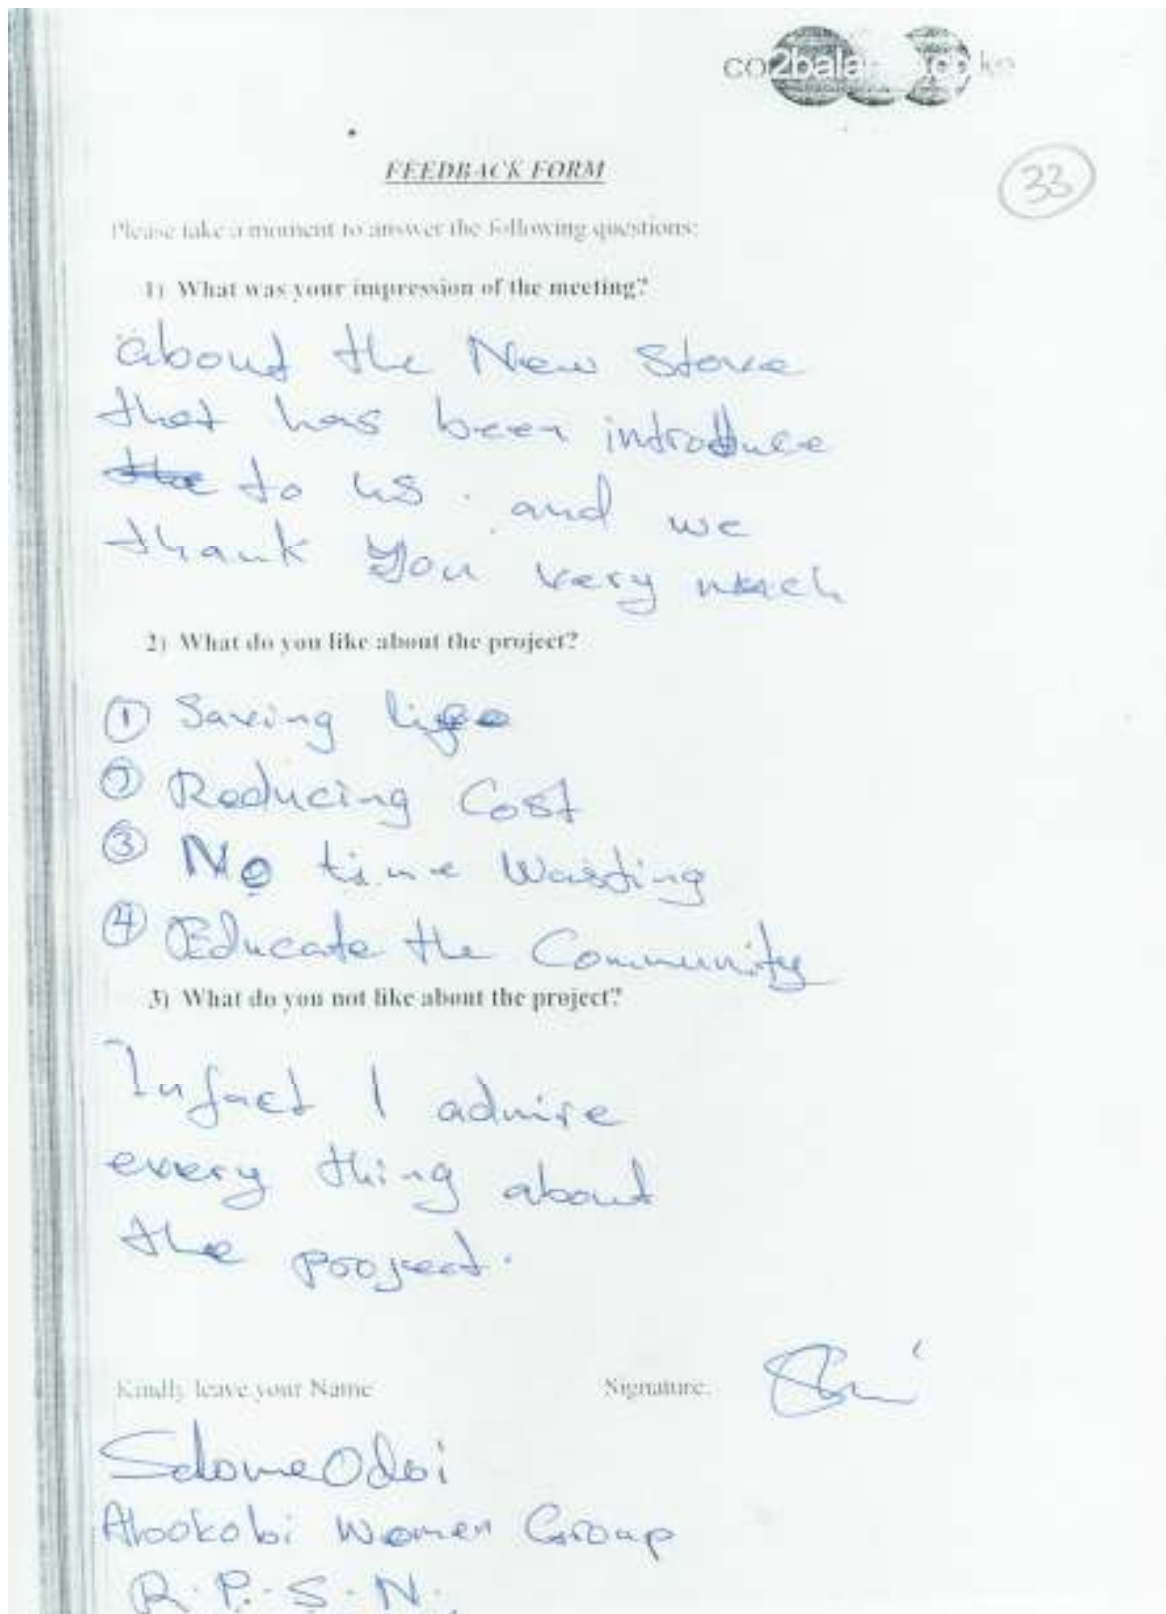 co2balance.co.ke
33
FEEDBACK FORM
Please take a moment to answer the following questions:
1) What was your impression of the meeting?
about the New Stove
that has been introduce
to us. and we
thank you very much
2) What do you like about the project?
① Saving life
② Reducing Cost
③ No time Wasting
④ Educate the Community
3) What do you not like about the project?
Infact I admire
every thing about
the project.
Kindly leave your Name
Signature:
Salome Odoi
Women Group
R.P.S.N.